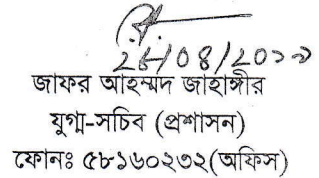 জাফর আহম্মদ জাহাঙ্গীর
যুগ্ম-সচিব (প্রশাসন)
ফোনঃ ৫৮১৬০২৩২(অফিস)